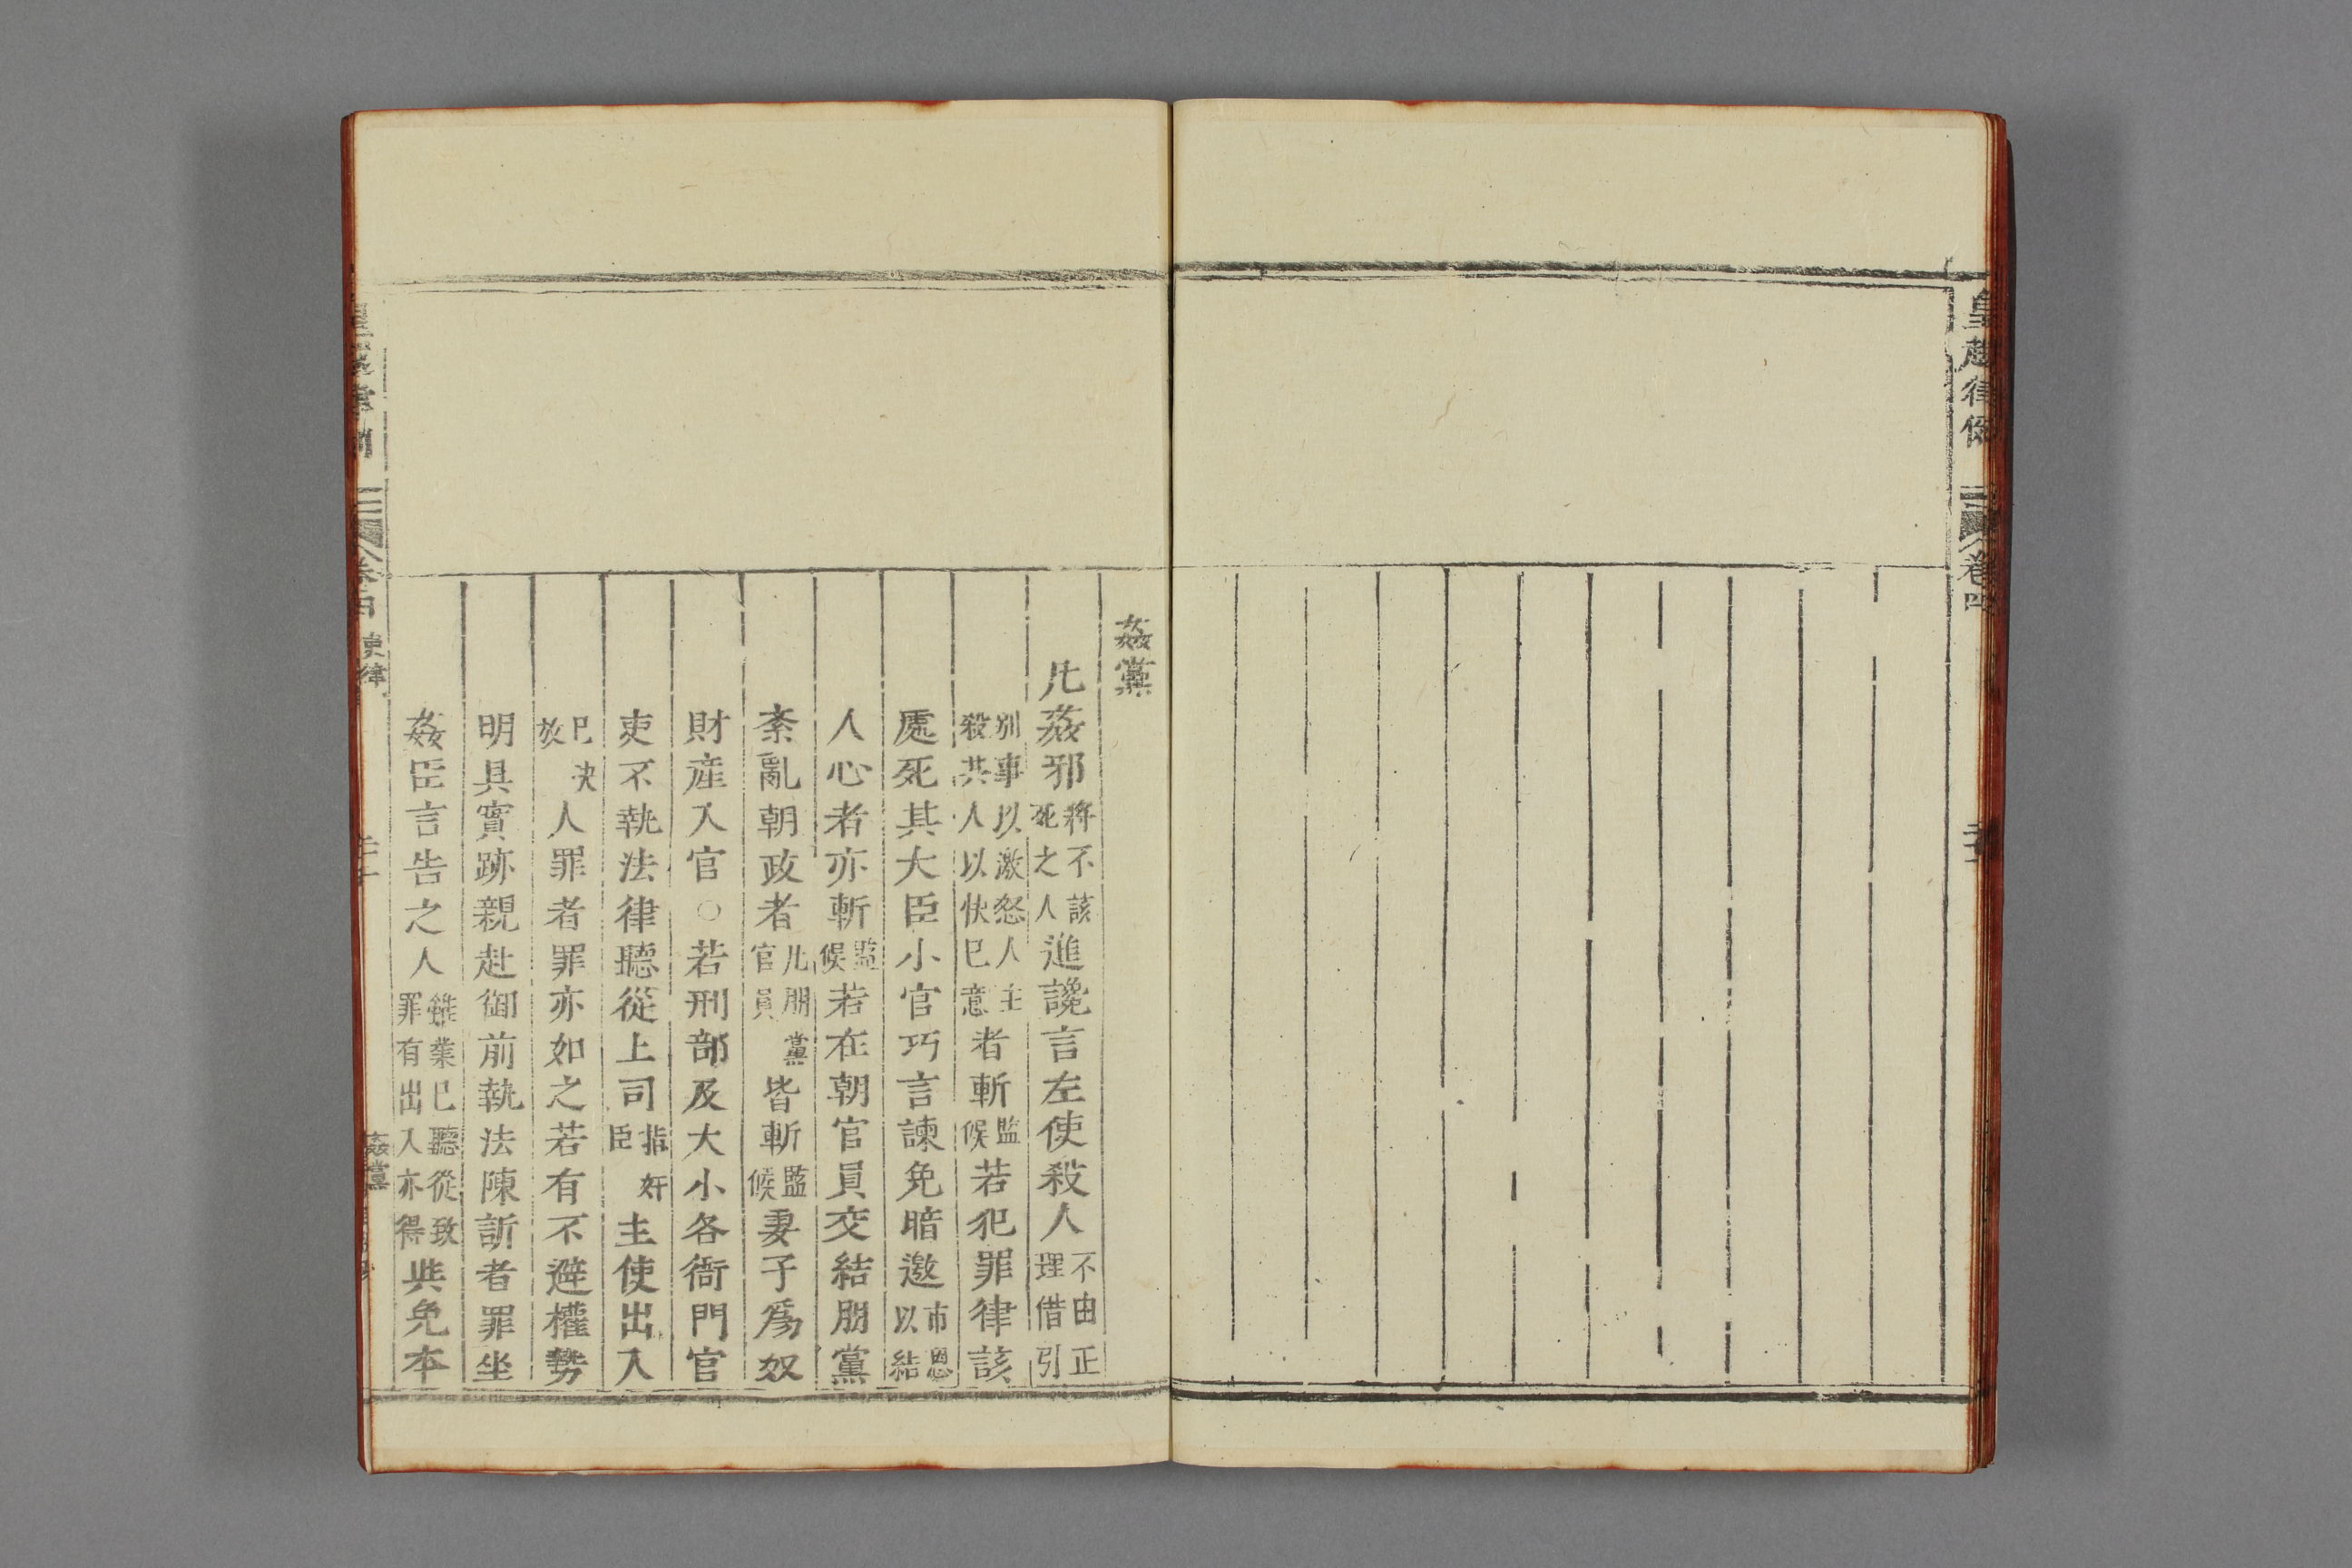 皇越律例 卷四
姦黨
凡姦邪將不該死之人進讒言左使殺人不由正理借引
別事以激怒人主殺其人以快已意者斬監候若犯罪律該
處死其大臣小官巧言諫免暗邀市恩以結
人心者亦斬監候若在朝官員交結朋黨
紊亂朝政者凡朋黨官員皆斬監候妻子爲奴
財産入官○若刑部及大小各衙門官
吏不執法律聽從上司指奸臣主使出入
已決放人罪者罪亦如之若有不避權勢
明具實跡親赴御前執法陳訴者罪坐
姦臣言告之人雖業已聽從致罪有出入亦得與免本
卷四 吏律
姦黨